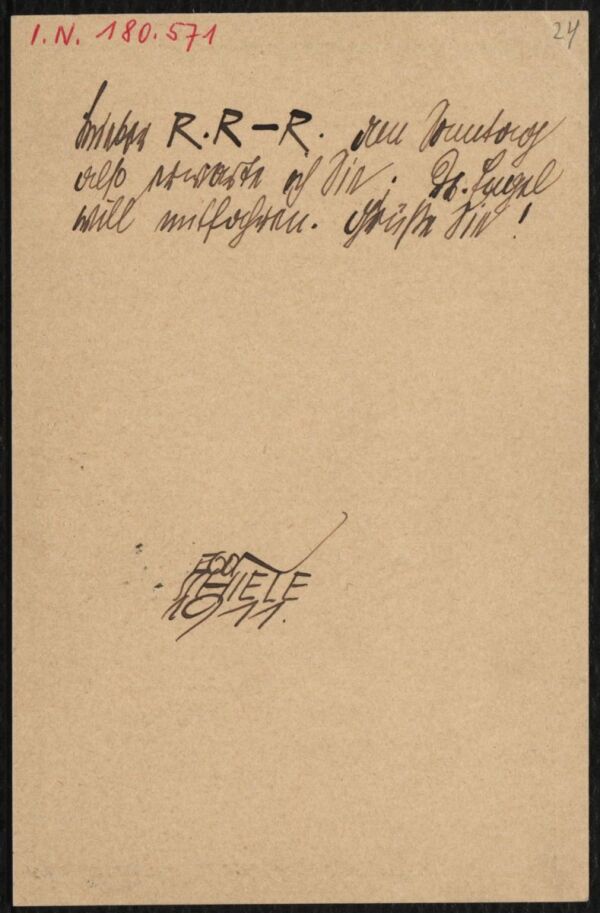 I.N. 180.571
24
Lieber R.R-R. den Sonntag
also erwarte ich Sie; Dr. Engel
will mitfahren. Grüße Sie!
EGON
SCHIELE
1911.